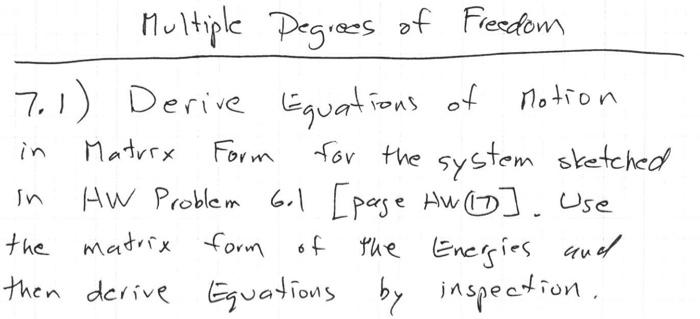 Multiple Degrees of Freedom
7.1) Derive Equations of Motion
in Matrix Form for the system sketched
in HW Problem 6.1 [page HW 17]. Use
the matrix form of the Energies and
then derive Equations by inspection.